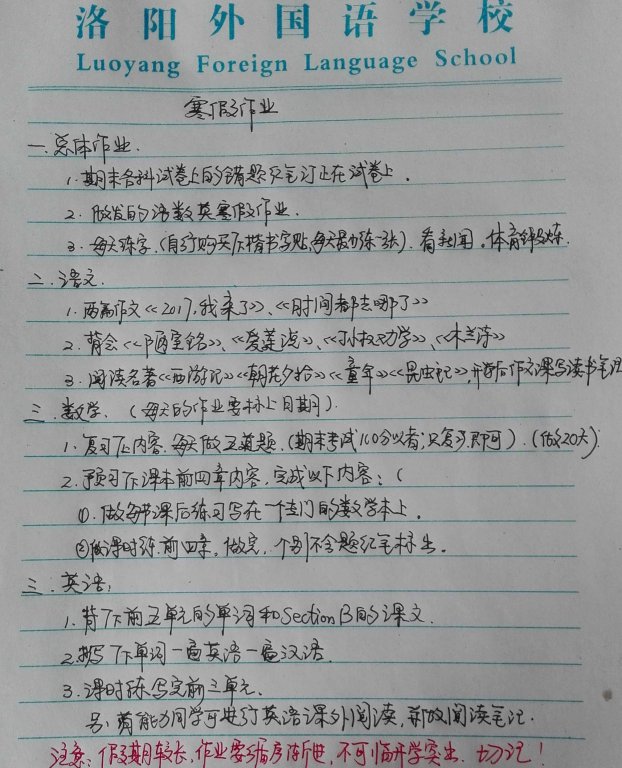 洛阳外国语学校
Luoyang Foreign Language School
寒假作业
一.总体作业.
1.期末各科试卷上的错题红笔订正在试卷上.
2.所发的语数英寒假作业.
3.每天练字.(自行购买下楷书字贴,每天最少练一张).看新闻.体育锻炼.
二.语文.
1.两篇作文《2017,我来了》、《时间都去哪了》
2.背会《陋室铭》、《爱莲说》、《孙权劝学》、《木兰诗》
3.阅读名著《西游记》《朝花夕拾》《童年》《昆虫记》,开学后作文课写读书笔记
三.数学.(每天的作业要标上日期).
1.复习7上内容.每天做五道题.(期末考试100分以者;只复习即可).(做20天).
2.预习下课本前四章内容,完成以下内容:(
①.做每节课后练习写在一个专门的数学本上.
②做课时练.前四章.做完,个别不会题红笔标出.
三.英语:
1.背7下前五单元的单词和Section B的课文.
2.抄写7下单词一遍英语一遍汉语.
3.课时练写完前三单元.
另:有能力同学可安订英语课外阅读,并做阅读笔记.
注意:假期较长,作业要循序渐进,不可临开学突击.切记!